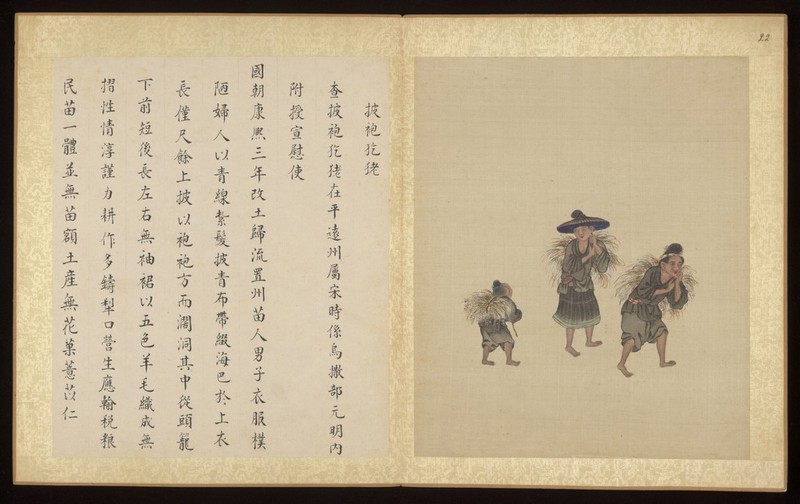 披袍犵狫
查披袍犵狫在平遠州屬宋時係烏撒部元明內
附授宣慰使
國朝康熙三年改土歸流置州苗人男子衣服樸
陋婦人以青線紮髮披青布帶綴海巴於上衣
長僅尺餘上披以袍袍方而濶洞其中從頭籠
下前短後長左右無袖裙以五色羊毛織成無
摺性情淳謹力耕作多鑄犁口營生應輸稅粮
民苗一體並無苗額土產無花菓薏苡仁
22